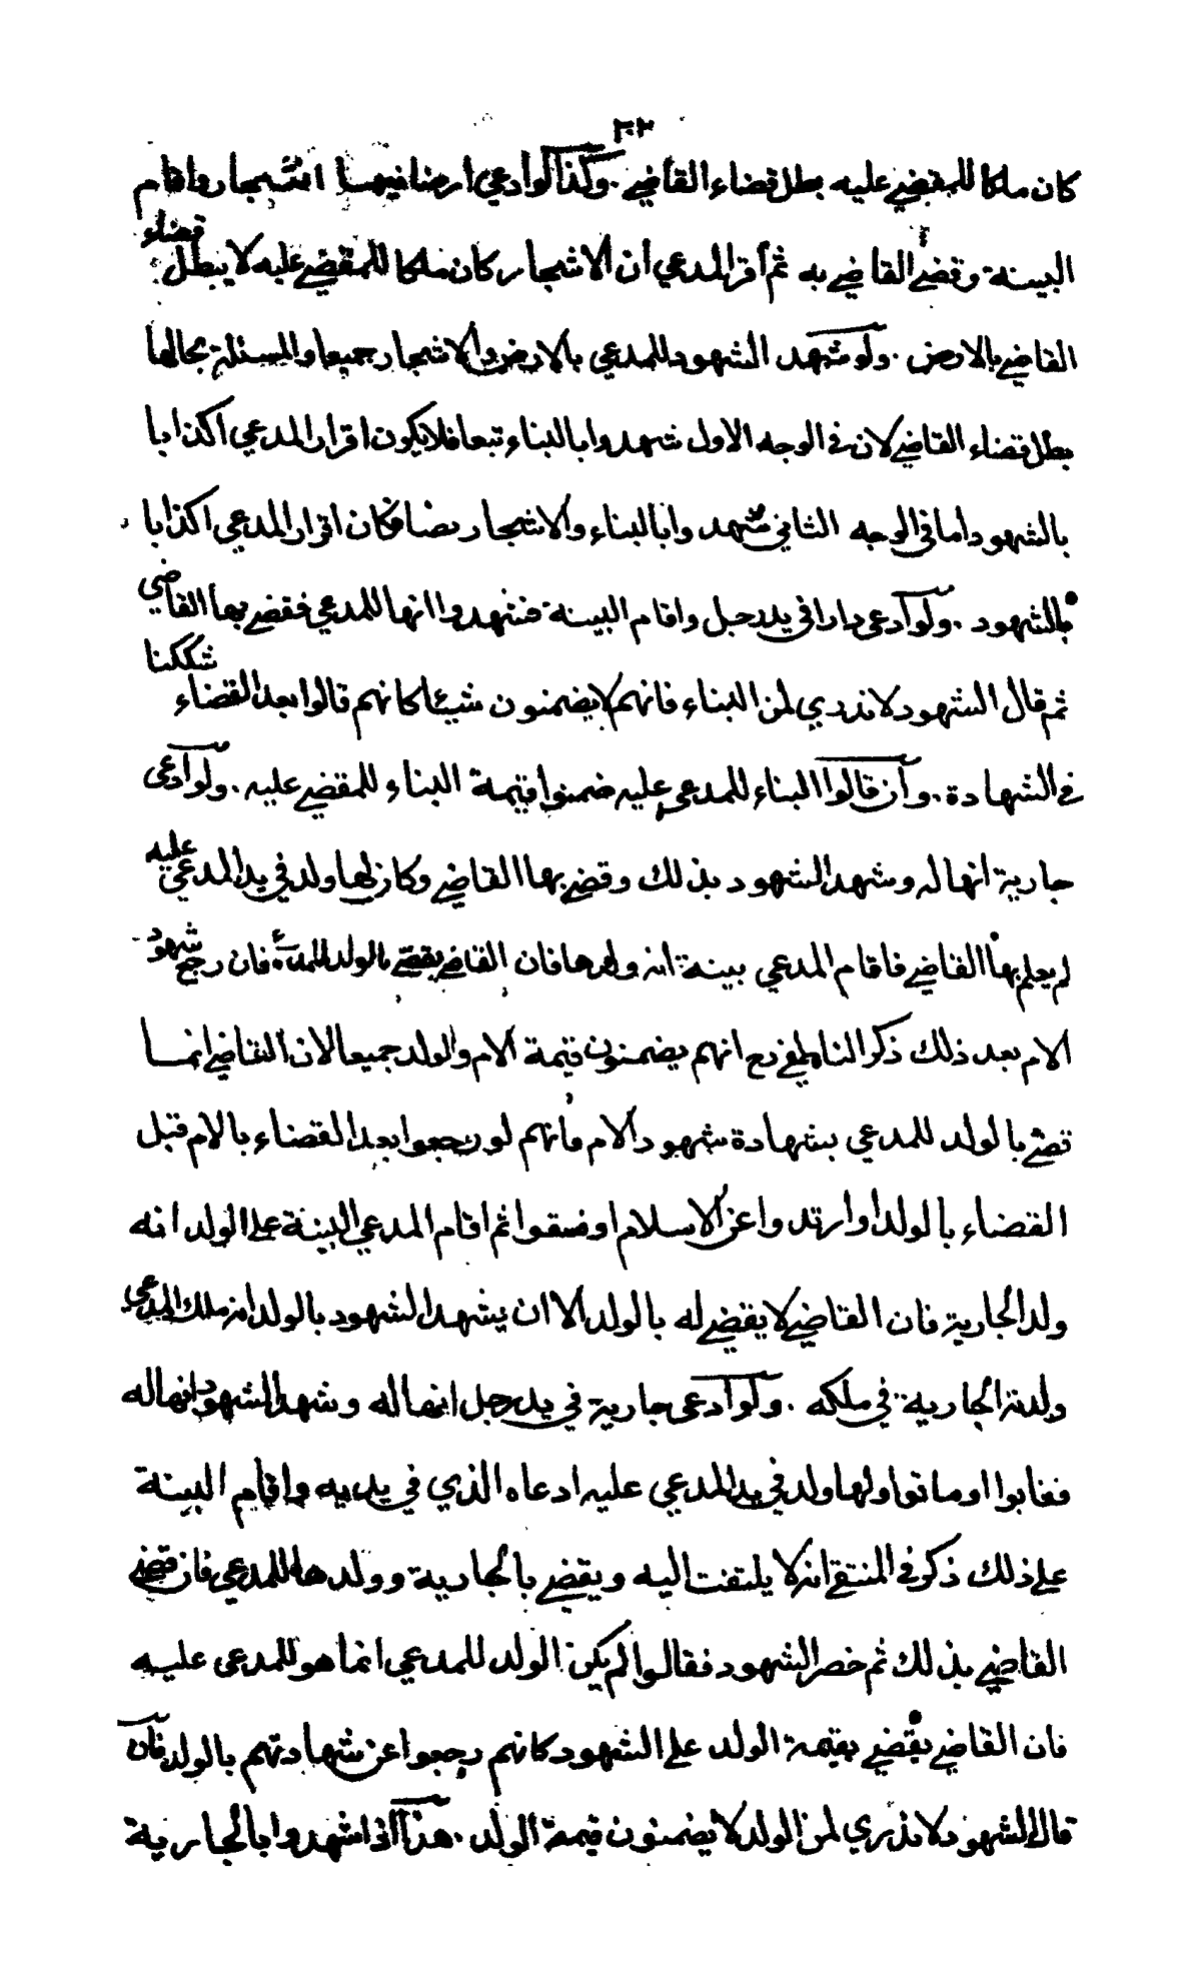 ٣٠٢
كان ملكا للمقضي عليه بطل قضاء القاضي . وكذا لو ادعى ارضا فيها اشجار واقام
البينة وقضى القاضي به ثم أقر المدعي ان الاشجار كان ملكا للمقضي عليه لا يبطل قضاء
القاضي بالارض . ولو شهد الشهود للمدعي بالارض والاشجار جميعا والمسئلة بحالها
بطل قضاء القاضي لان في الوجه الاول شهدوا بالبناء تبعا فلا يكون اقرار المدعي اكذابا
بالشهود اما في الوجه الثاني شهدوا بالبناء والاشجار نصا فكان اقرار المدعي اكذابا
بالشهود . ولو ادعى دارا في يد رجل واقام البينة فشهدوا انها للمدعي فقضى بها القاضي
ثم قال الشهود لا ندري لمن البناء فانهم لا يضمنون شيئا كانهم قالوا بعد القضاء شككنا
في الشهادة . وان قالوا البناء للمدعى عليه ضمنوا قيمة البناء للمقضي عليه . ولو ادعى
جارية انها له وشهد الشهود بذلك وقضى بها القاضي وكان لها ولد في يد المدعى عليه
لم يعلم بها القاضي فاقام المدعي بينة انه ولدها فان القاضي يقضي بالولد للمدعي فان رجع شهود
الام بعد ذلك ذكر الناطفي رح انهم يضمنون قيمة الام والولد جميعا لان القاضي انما
قضى بالولد للمدعي بشهادة شهود الام فانهم لو رجعوا بعد القضاء بالام قبل
القضاء بالولد او ارتدوا عن الاسلام او فسقوا ثم اقام المدعي البينة على الولد انه
ولد الجارية فان القاضي لا يقضي له بالولد الا ان يشهد الشهود بالولد انه ملك المدعي
ولدته الجارية في ملكه . ولو ادعى جارية في يد رجل انها له وشهد الشهود انها له
فغابوا او ماتوا ولها ولد في يد المدعي عليه ادعاه الذي في يديه واقام البينة
على ذلك ذكر في المنتقى انه لا يلتفت اليه ويقضي بالجارية وولدها للمدعي فان قضى
القاضي بذلك ثم حضر الشهود فقالوا لم يكن الولد للمدعي انما هو للمدعى عليه
فان القاضي يقضي بقيمة الولد على الشهود كانهم رجعوا عن شهادتهم بالولد فان
قال الشهود لا ندري لمن الولد لا يضمنون قيمة الولد . هذا اذا شهدوا بالجارية